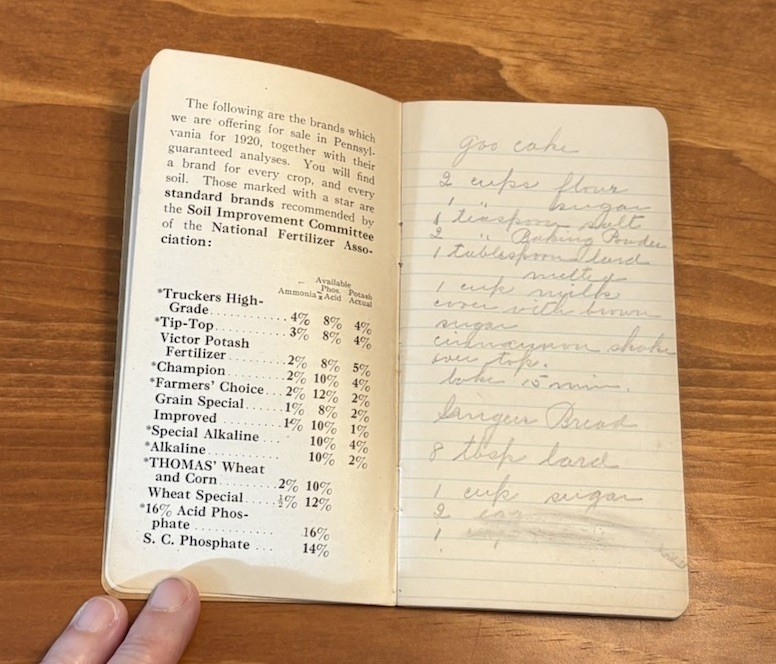 The following are the brands which
we are offering for sale in Pennsyl-
vania for 1920, together with their
guaranteed analyses. You will find
a brand for every crop, and every
soil. Those marked with a star are
standard brands recommended by
the Soil Improvement Committee
of the National Fertilizer Asso-
ciation:
Available
Phos. Potash
Ammonia Acid Actual
*Truckers High-
Grade .......... 4% 8% 4%
*Tip-Top ......... 3% 8% 4%
Victor Potash
Fertilizer ........ 2% 8% 5%
*Champion ........ 2% 10% 4%
*Farmers' Choice... 2% 12% 2%
Grain Special ...... 1% 8% 2%
Improved ......... 1% 10% 1%
*Special Alkaline ... 10% 4%
*Alkaline .......... 10% 2%
*THOMAS' Wheat
and Corn ....... 2% 10%
Wheat Special ..... ½% 12%
*16% Acid Phos-
phate ........... 16%
S. C. Phosphate ... 14%
goo cake
2 cups flour
1 " sugar
1 teaspoon salt
2 " Baking Powder
1 tablespoon lard
melted
1 cup milk
cover with brown
sugar
cinnamon shake
over top.
bake 15 min.
Ginger Bread
8 tbsp lard
1 cup sugar
2 egg
1